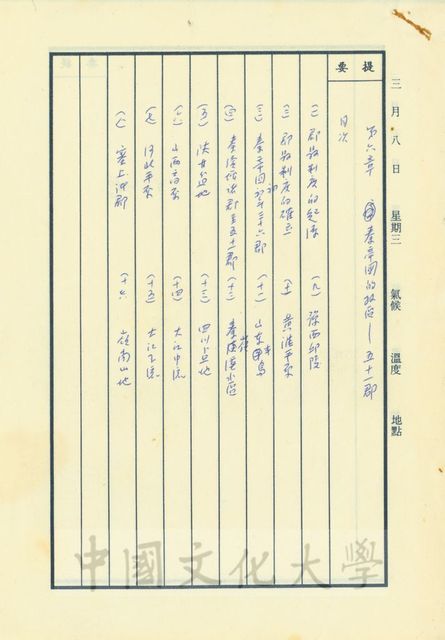 三月八日 星期三 氣候 溫度 地點
提要
第六章 秦帝國的政區—五十一郡
目次
(一) 郡縣制度的起源
(二) 郡縣制度的確立
(三) 秦帝國初期三十六郡
(四) 秦後增諸郡至五十一郡
(五) 陝甘盆地
(六) 山西高原
(七) 河北平原
(八) 塞上諸郡
(九) 豫西邱陵
(十) 黃淮平原
(十一) 山東半島
(十二) 秦嶺漢水區
(十三) 四川盆地
(十四) 大江中流
(十五) 大江下流
(十六) 嶺南山地
中國文化大學